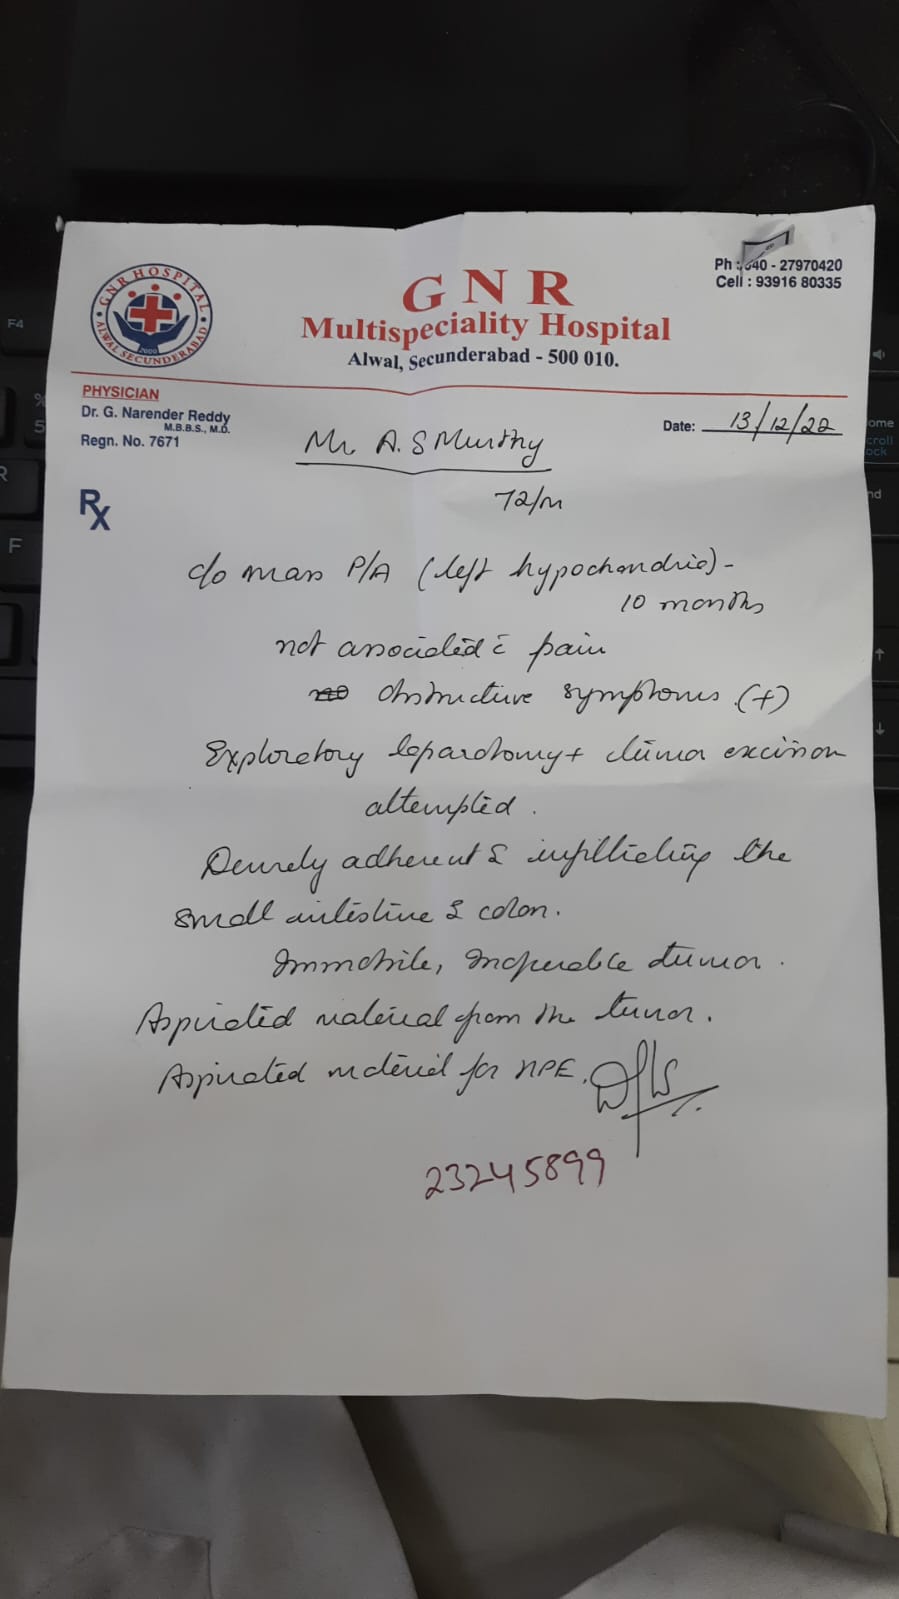 GNR HOSPITAL
ALWAL SECUNDERABAD
2000
G N R
Multispeciality Hospital
Alwal, Secunderabad - 500 010.
Ph : 040 - 27970420
Cell : 93916 80335
PHYSICIAN
Dr. G. Narender Reddy
M.B.B.S., M.D.
Regn. No. 7671
Date: 13/12/22
Mr A. S Murthy
72/M
Rx
c/o mass P/A (left hypochondria) -
10 months
not associated c̄ pain
obstructive symptoms (+)
Exploratory laparotomy + tumor excision
attempted.
Densely adherent & infiltrating the
small intestine & colon.
Immobile, inoperable tumor.
Aspirated material from the tumor.
Aspirated material for HPE.
23245899
F4
%
5
R
F
ome
croll
ock
nd